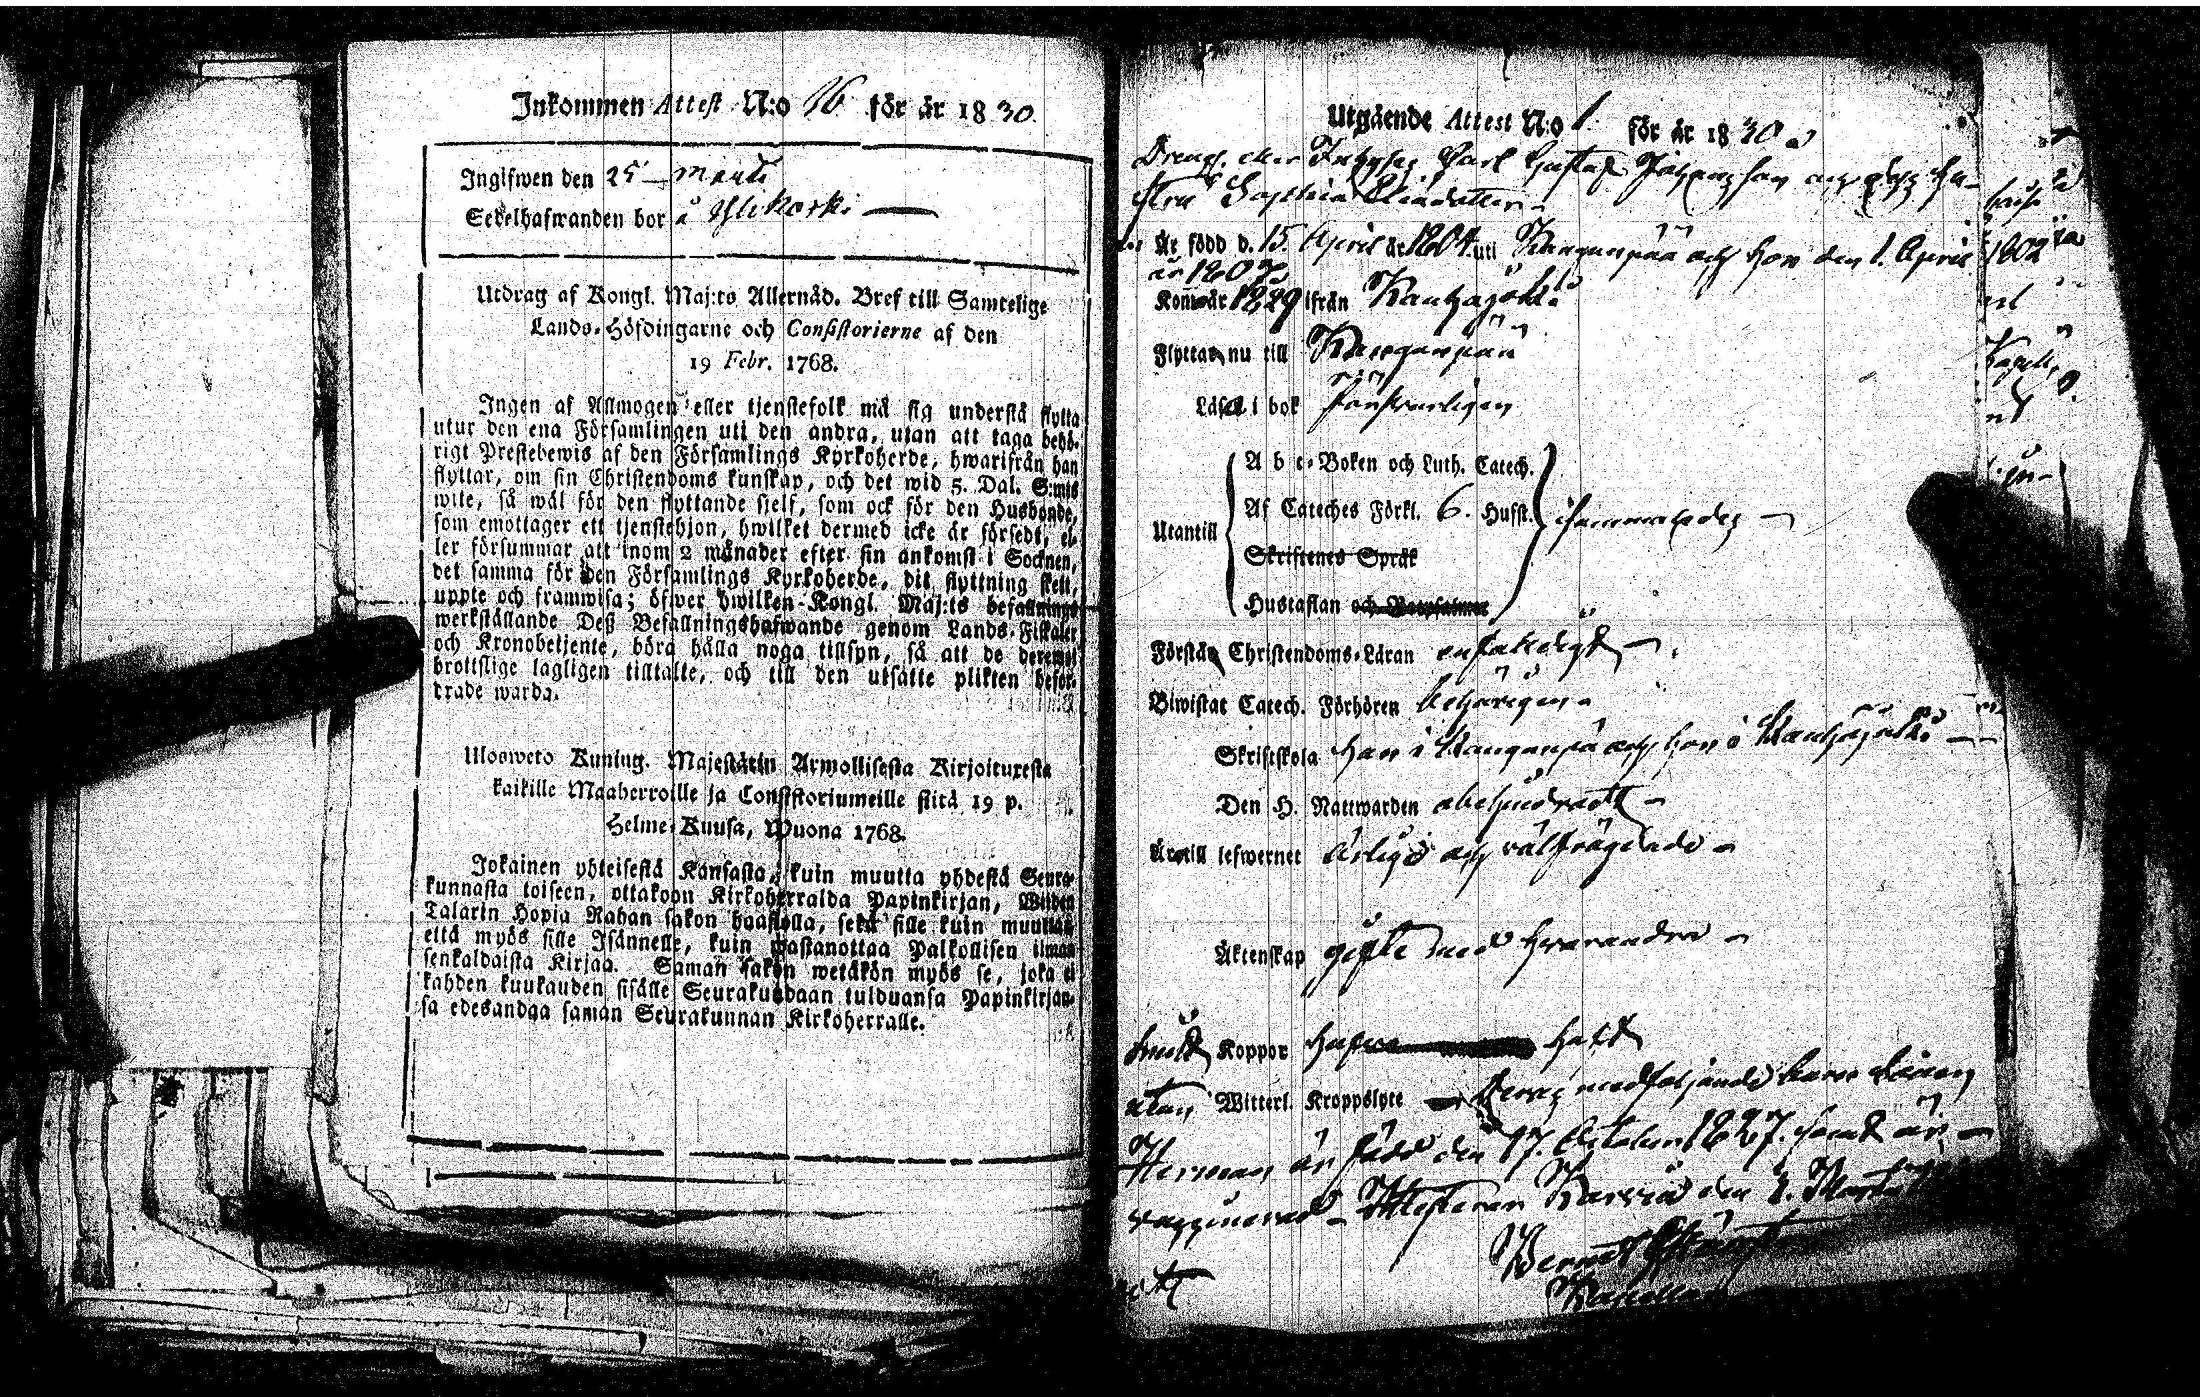 Inkommen Attest N:o 16 för år 1830.
Inglswen den 25 Martii
Sedelhafwanden bor å Ylikoski
Utdrag af Kongl. Maj:ts Allernåd. Bref till Samtelige
Lands-Höfdingarne och Consistorierne af den
19 Febr. 1768.
Ingen af Allmogen eller tjenstefolk må sig understå flytta
utur den ena Församlingen uti den andra, utan att taga behö-
rigt Prestebewis af den Församlings Kyrkoherde, hwarifrån han
flyttar, om sin Christendoms kunskap, och det wid 5. Dal. S:mts
wite, så wäl för den flyttande sjelf, som ock för den Husbonde,
som emottager ett tjenstehjon, hwilket dermed icke är försedt, el-
ler försummar att inom 2 månader efter sin ankomst i Socknen,
det samma för den Församlings Kyrkoherde, dit flyttning skett,
uppte och framwisa; öfwer hwilken Kongl. Maj:ts befallnings
werkställande Deß Befallningshafwande genom Lands-Fiskaler
och Kronobetjente, böra hålla noga tillsyn, så att de deremot
brottslige lagligen tilltalte, och till den utsatte plikten befor-
drade warda.
Ulosweto Kuning. Majestätin Armollisesta Kirjoituxesta
kaikille Maaherroille ja Consistoriumeille siitä 19 p.
Helme-Kuusa, Wuona 1768.
Jokainen yhteisestä Kansasta, kuin muutta yhdestä Seura-
kunnasta toiseen, ottakoon Kirkoherralda Papinkirjan, Wiiden
Talarin Hopia Rahan sakon haastolla, sekä sille kuin muuttaa
että myös sille Isännelle, kuin wastanottaa Palkollisen ilman
senkaldaista Kirjaa. Saman sakon wetäkön myös se, joka ei
kahden kuukauden sisälle Seurakundaan tulduansa Papinkirjan-
sa edesandaa saman Seurakunnan Kirkoherralle.
Utgående Attest N:o 1. för år 1830.
Carl Gustaf Johansson och dess hu-
stru Sophia
Är född d. 15. April år 1804 uti Kangunpää och hon den 1. April
år 1807
Kom år 1829 ifrån Kauhajoki
Flyttar nu till Kangunpää
Läser i bok försvarligen
Utantill
A b c-Boken och Luth. Catech.
Af Cateches Förkl. 6. Husft.
Skriftenes Språk
Hustaflan och Botpsalmer
Förstår Christendoms-Läran enfaldigt
Biwistat Catech. Förhören behörigen
Skriftskola han i Kangunpää och hon i Kauhajoki
Den H. Nattwarden
Är till lefwernet ärlige och välfrägdade
Äktenskap gifte med hwarandra
Koppor hafva haft
utan Witterl. Kroppslyte medföljande barn
Herman är född den 17. October 1827. samt är
vaccinerad. Attesterar Karvia den 2. Martii